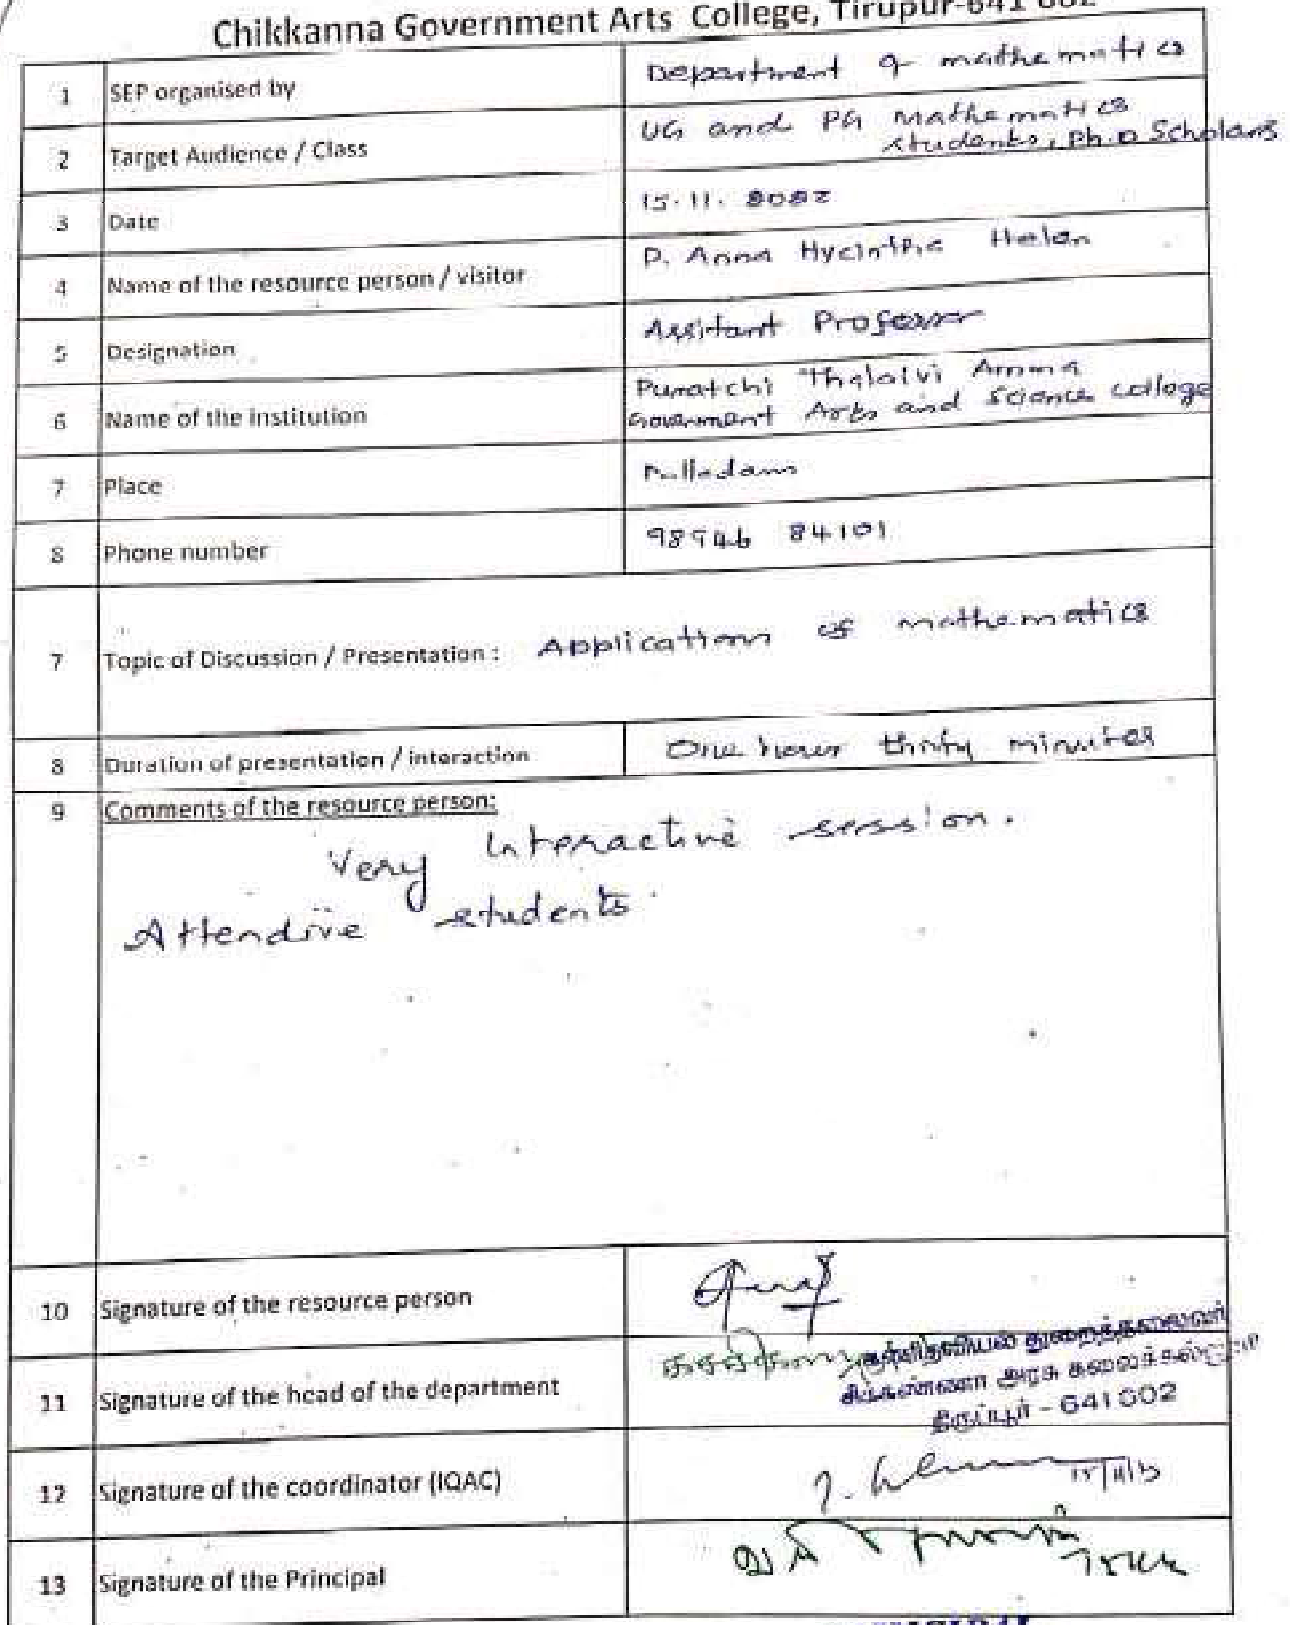 Chikkanna Government Arts College, Tirupur-641 602
1 SEP organised by Department of mathematics
2 Target Audience / Class UG and PG Mathematics
students, Ph.D Scholars
3 Date 15.11.2022
4 Name of the resource person / visitor P. Anna Hycinthe Helen
5 Designation Assitant Professor
6 Name of the institution Puratchi Thalaivi Amma
Government Arts and Science college
7 Place Palladam
8 Phone number 98946 84101
7 Topic of Discussion / Presentation : Application of mathematics
8 Duration of presentation / interaction One hour thirty minutes
9 Comments of the resource person:
Very Interactive session.
Attendive students
10 Signature of the resource person
11 Signature of the head of the department
துறைத்தலைவர்
சிக்கண்ணா அரசு கலைக்கல்லூரி
திருப்பூர் - 641 602
12 Signature of the coordinator (IQAC)
13 Signature of the Principal